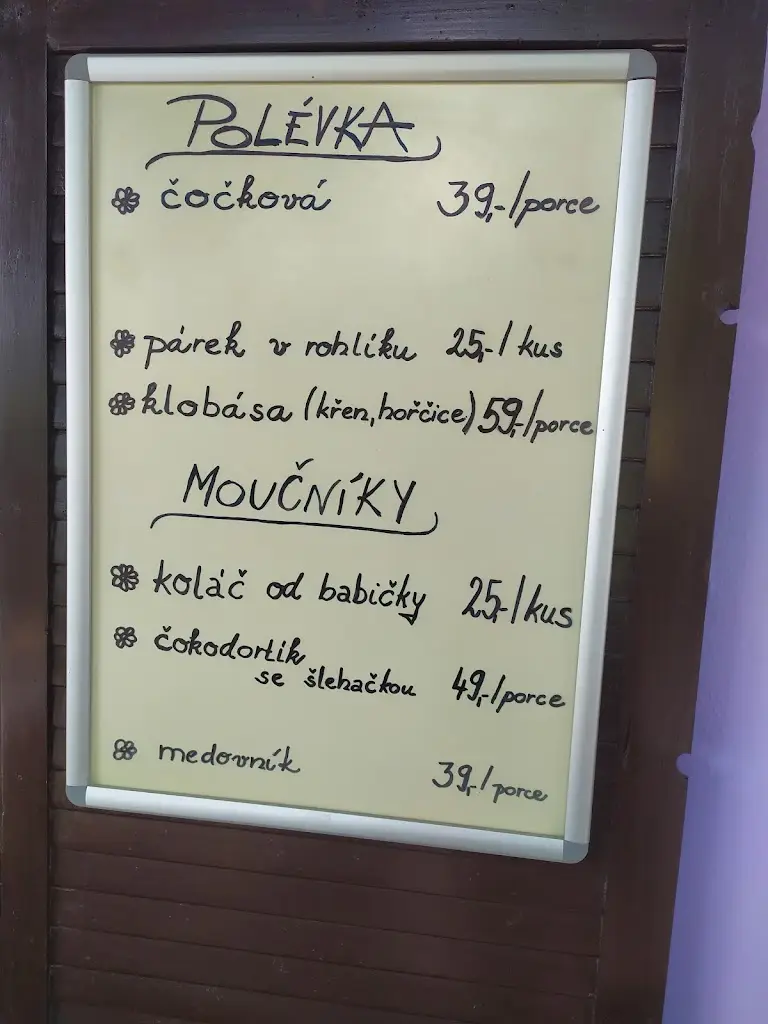 POLÉVKA
čočková 39,-/porce
párek v rohlíku 25,-/kus
klobása (křen, hořčice) 59,-/porce
MOUČNÍKY
koláč od babičky 25,-/kus
čokodortík
se šlehačkou 49,-/porce
medovník 39,-/porce